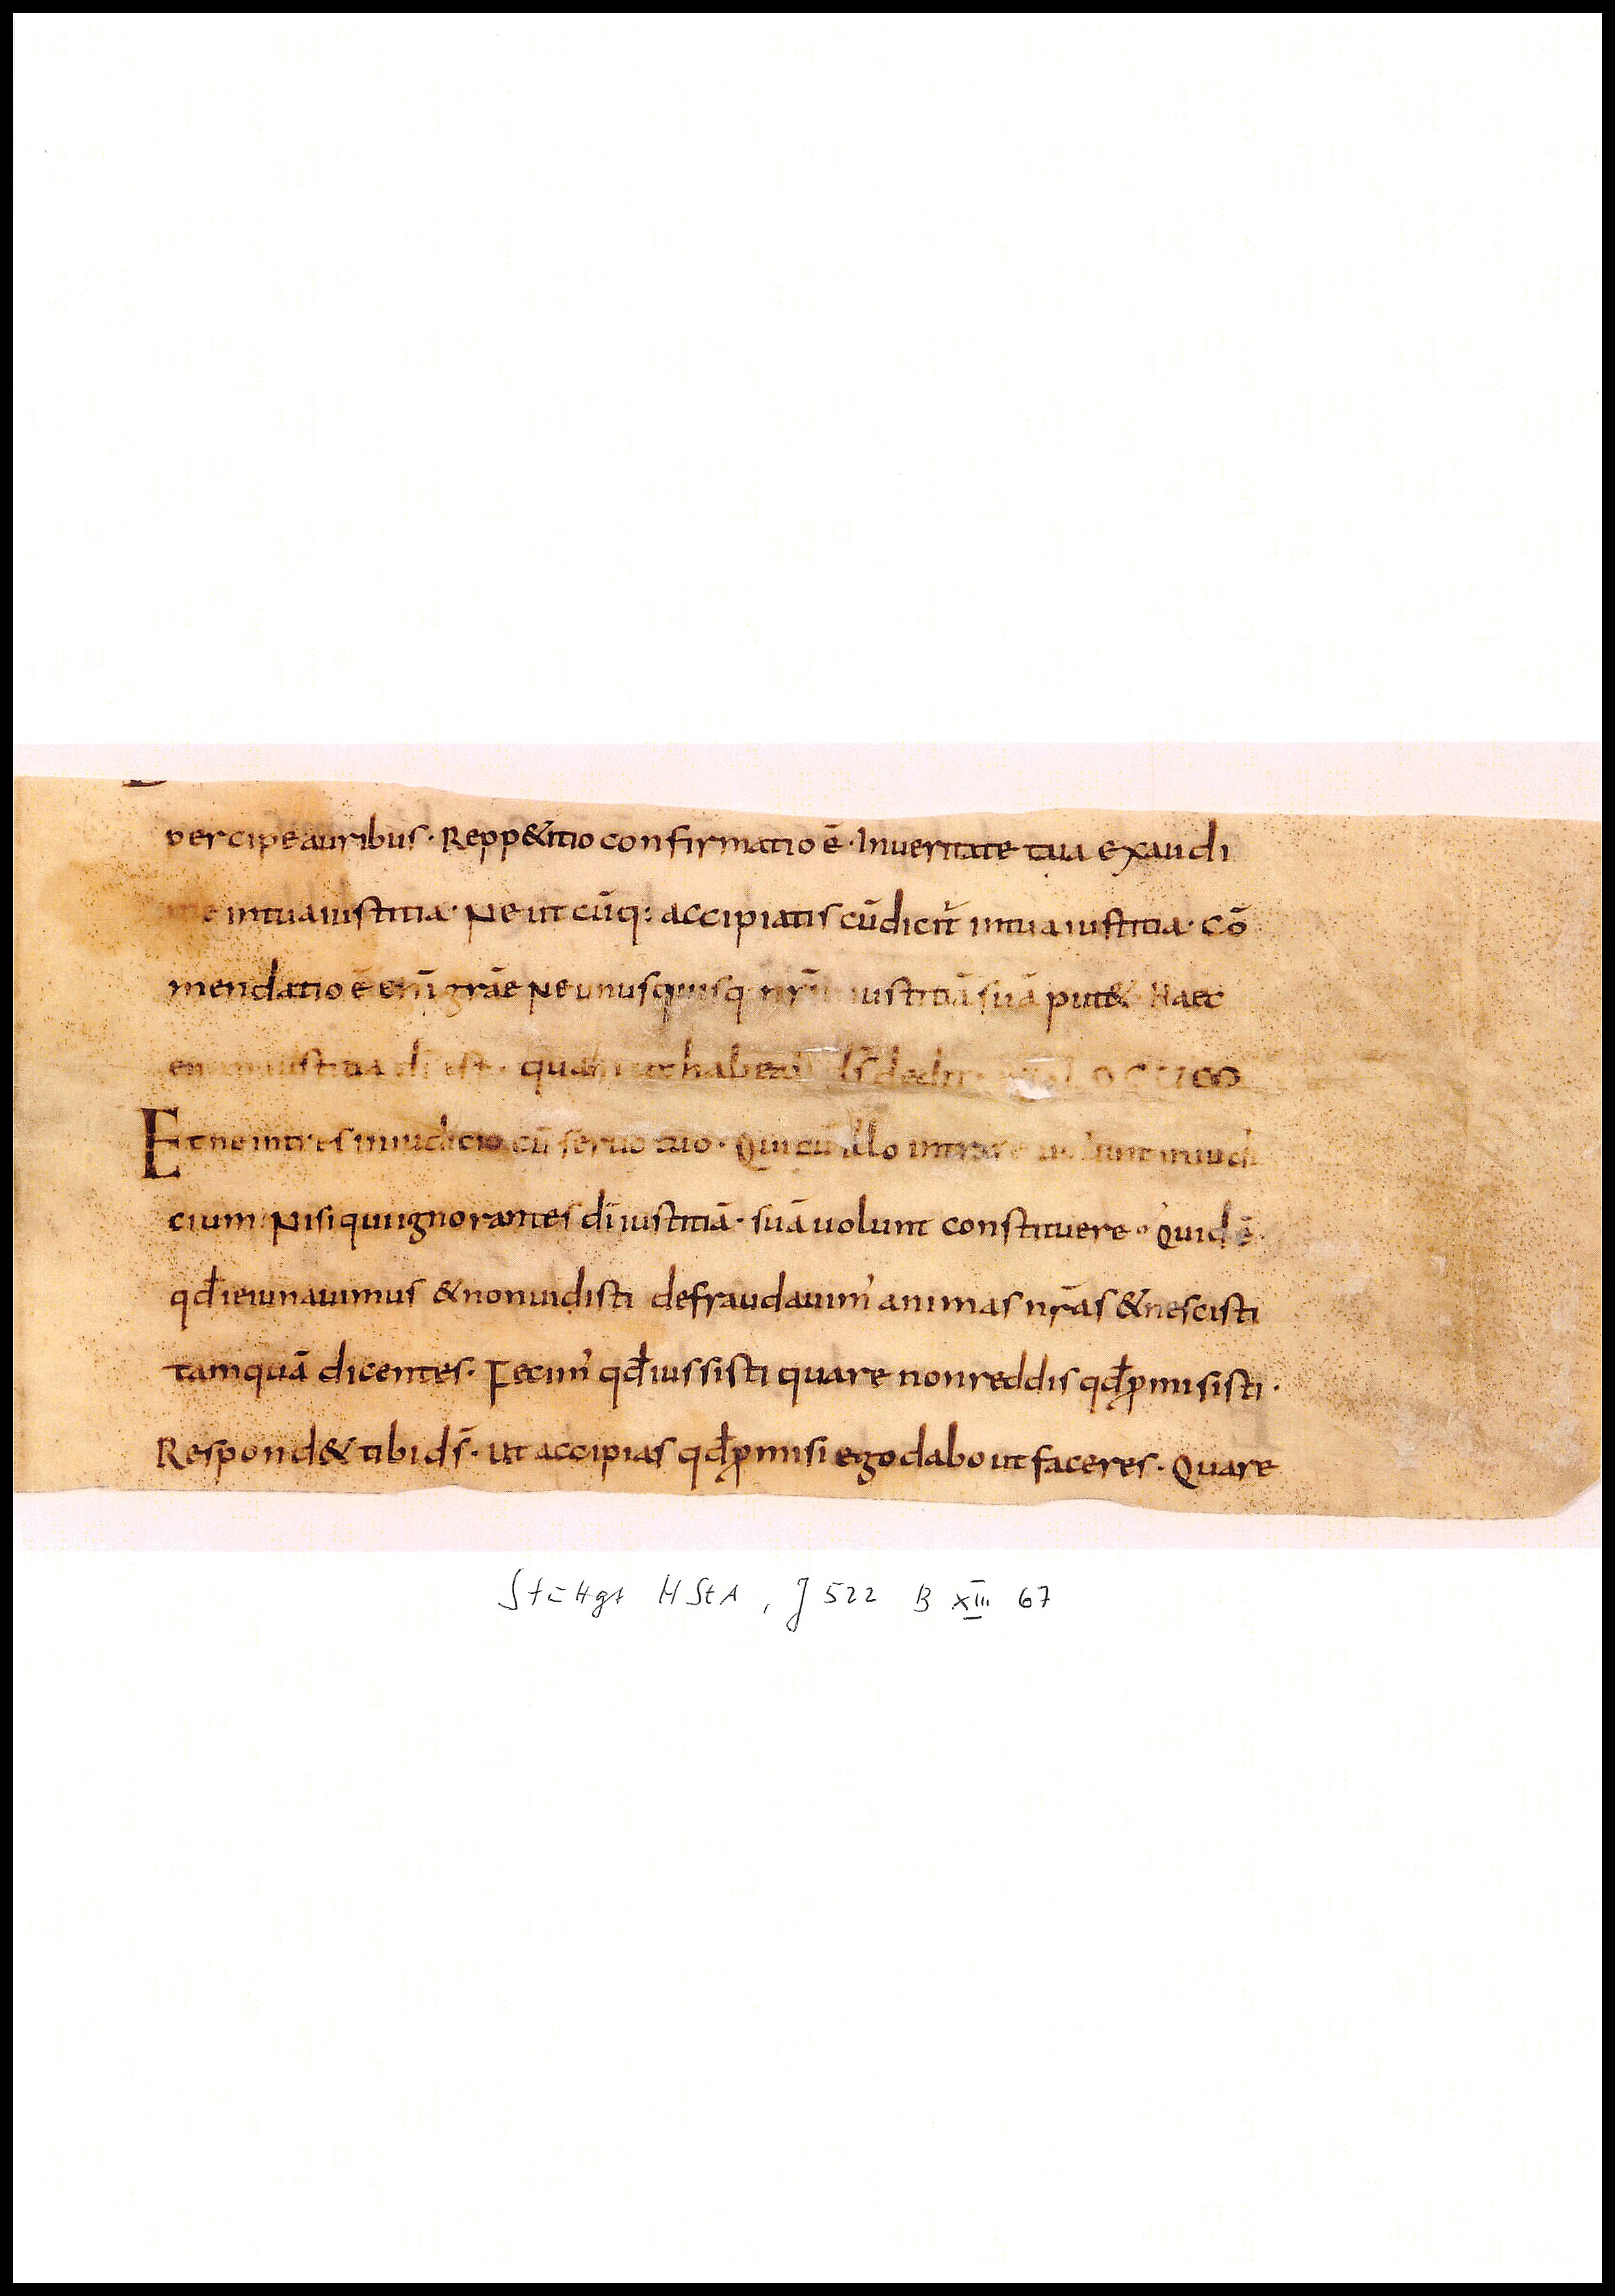 percipe auribus · Repp&itio confirmatio ē · In ueritate tua exaudi
me in tua iustitia · Ne ut cūq: accipiatis cū dicit̄ in tua iustitia · Cō
mendatio ē eni̅ grāe Ne unusquisq nr̄m iustitiā suā put& Haec
enim iustitia di est · quam ut habeas d̄s dedit ·
Et ne intres in iudicio cū seruo tuo · Qui cū illo intrare uolunt in iudi
cium Nisi qui ignorantes dī iustitiā · suā uolunt constituere · Quid ē
qđ ieiunauimus & non uidisti defraudauim' animas nr̄as & nescisti
tamquā dicentes · Fecim' qđ iussisti quare non reddis qđ ꝓmisisti ·
Respond& tibi d̄s · Ut accipias qđ ꝓmisi ego dabo ut faceres · Quare
Stuttgt HStA, J 522 B XIII 67